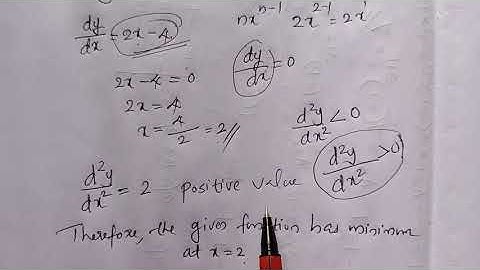 dy/dx = 2x-4 nx^n-1 2x^2-1 = 2x^1
2x-4 = 0 dy/dx = 0
2x = 4
x = 4/2 = 2// d²y/dx² < 0
d²y/dx² > 0
d²y/dx² = 2 positive value
Therefore, the given function has minimum
at x = 2